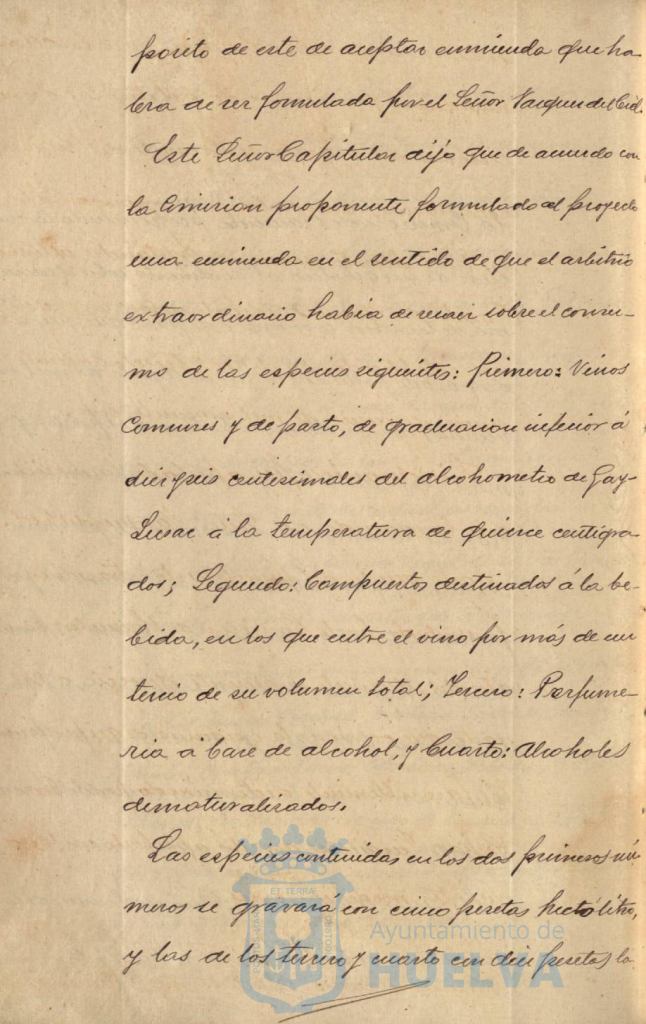 posito de este de aceptar enmienda que ha-
brá de ser formulada por el Señor Vazquez del Cid.
Este Señor Capitular dijo que de acuerdo con
la Comision proponente formulado al proyecto
una enmienda en el sentido de que el arbitrio
extraordinario habia de recaer sobre el consu-
mo de las especies siguientes: Primero: Vinos
Comunes y de pasto, de graduacion inferior á
diez y seis centesimales del alcohometro de Gay-
Lusac á la temperatura de quince centigra-
dos; Segundo: Compuestos destinados á la be-
bida, en los que entre el vino por más de un
tercio de su volumen total; Tercero: Perfume-
ria á base de alcohol, y Cuarto: Alcoholes
desnaturalizados.
Las especies contenidas en los dos primeros nú-
meros se gravará con cinco pesetas hectólitro,
y las de los tercero y cuarto con diez pesetas la
ET TERRÆ
Ayuntamiento de
HUELVA